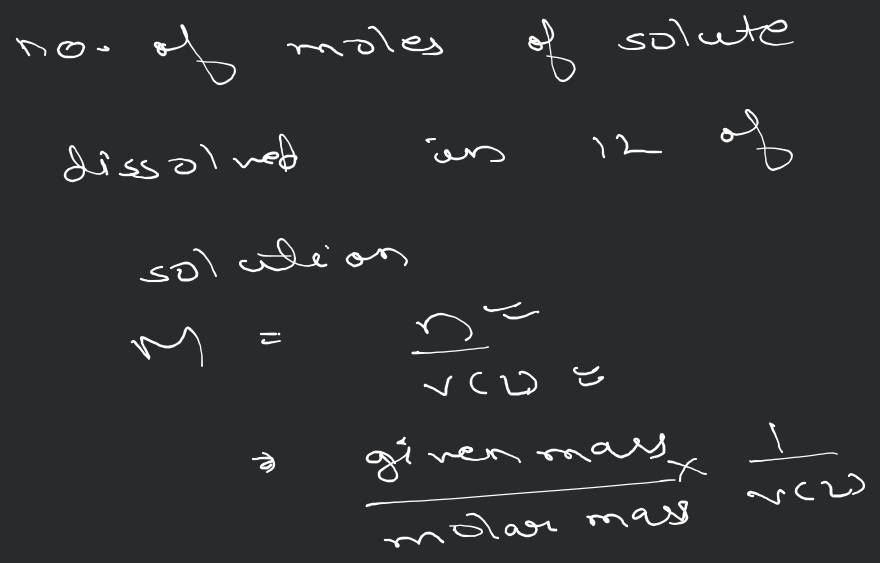 no. of moles of solute
dissolved in 1L of
solution
M = n / V(L)
→ given mass / molar mass × 1 / V(L)